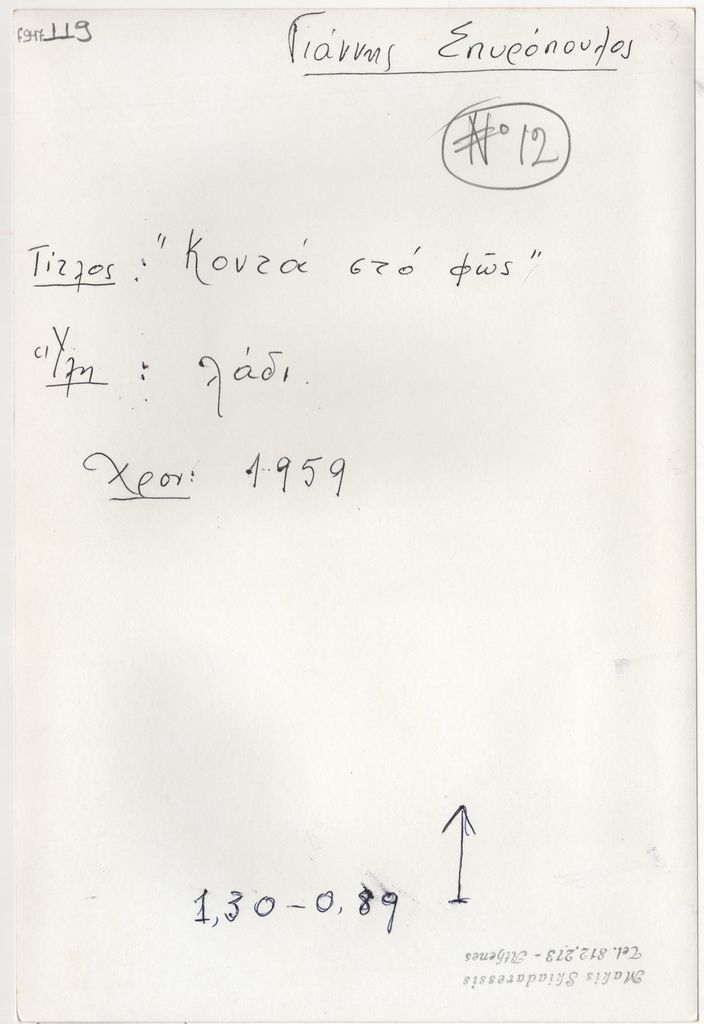 F947 119
Γιάννης Σπυρόπουλος
Nº 12
Τίτλος : "Κοντά στό φῶς"
Ὕλη : λάδι
Χρον: 1959
1,30 - 0,89
Makis Skiadaressis
Tel. 812,273 - Athenes